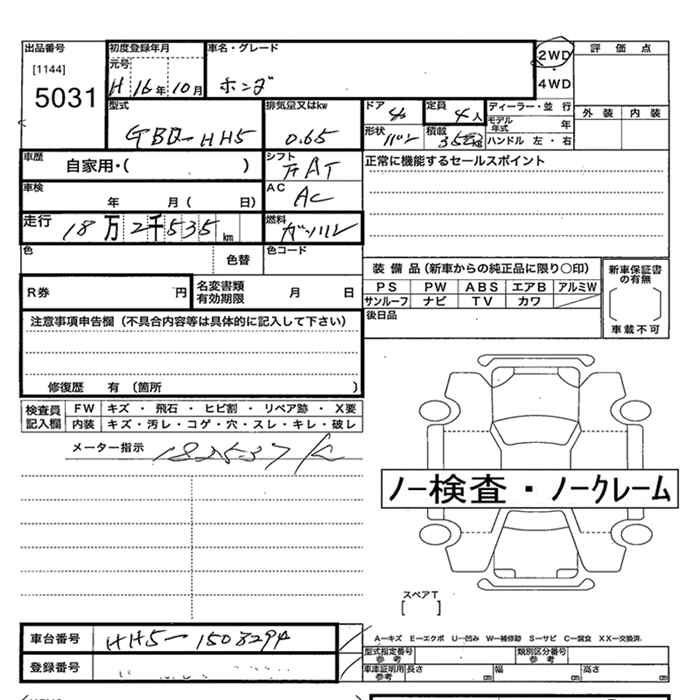 出品番号
[1144]
5031
初度登録年月
元号
H 16年 10月
車名・グレード
ホンダ
2WD
4WD
評価点
外装 内装
型式
GBD-HH5
排気量又はkw
0.65
ドア
4
定員
4人
形状
バン
積載
350kg
ディーラー・並 行
モデル年式 年
ハンドル 左・右
車歴
自家用・( )
シフト
FAT
正常に機能するセールスポイント
車検
年 月( 日)
AC
AC
走行
18万2千535km
燃料
ガソリン
色
色替
色コード
装備品(新車からの純正品に限り○印)
PS PW ABS エアB アルミW
サンルーフ ナビ TV カワ
新車保証書の有無
車載不可
R券 円
名変書類有効期限 月 日
後日品
注意事項申告欄(不具合内容等は具体的に記入して下さい)
修復歴 有(箇所 )
検査員記入欄
FW キズ・飛石・ヒビ割・リペア跡・X要
内装 キズ・汚レ・コゲ・穴・スレ・キレ・破レ
メーター指示 182537K
ノー検査・ノークレーム
スペアT
[ ]
車台番号
HH5-1503294
登録番号
A—キズ E—エクボ U—凹み W—補修跡 S—サビ C—腐食 XX—交換済
型式指定番号参考
類別区分番号参考
車庫証明用参考 長さ cm 幅 cm 高さ cm